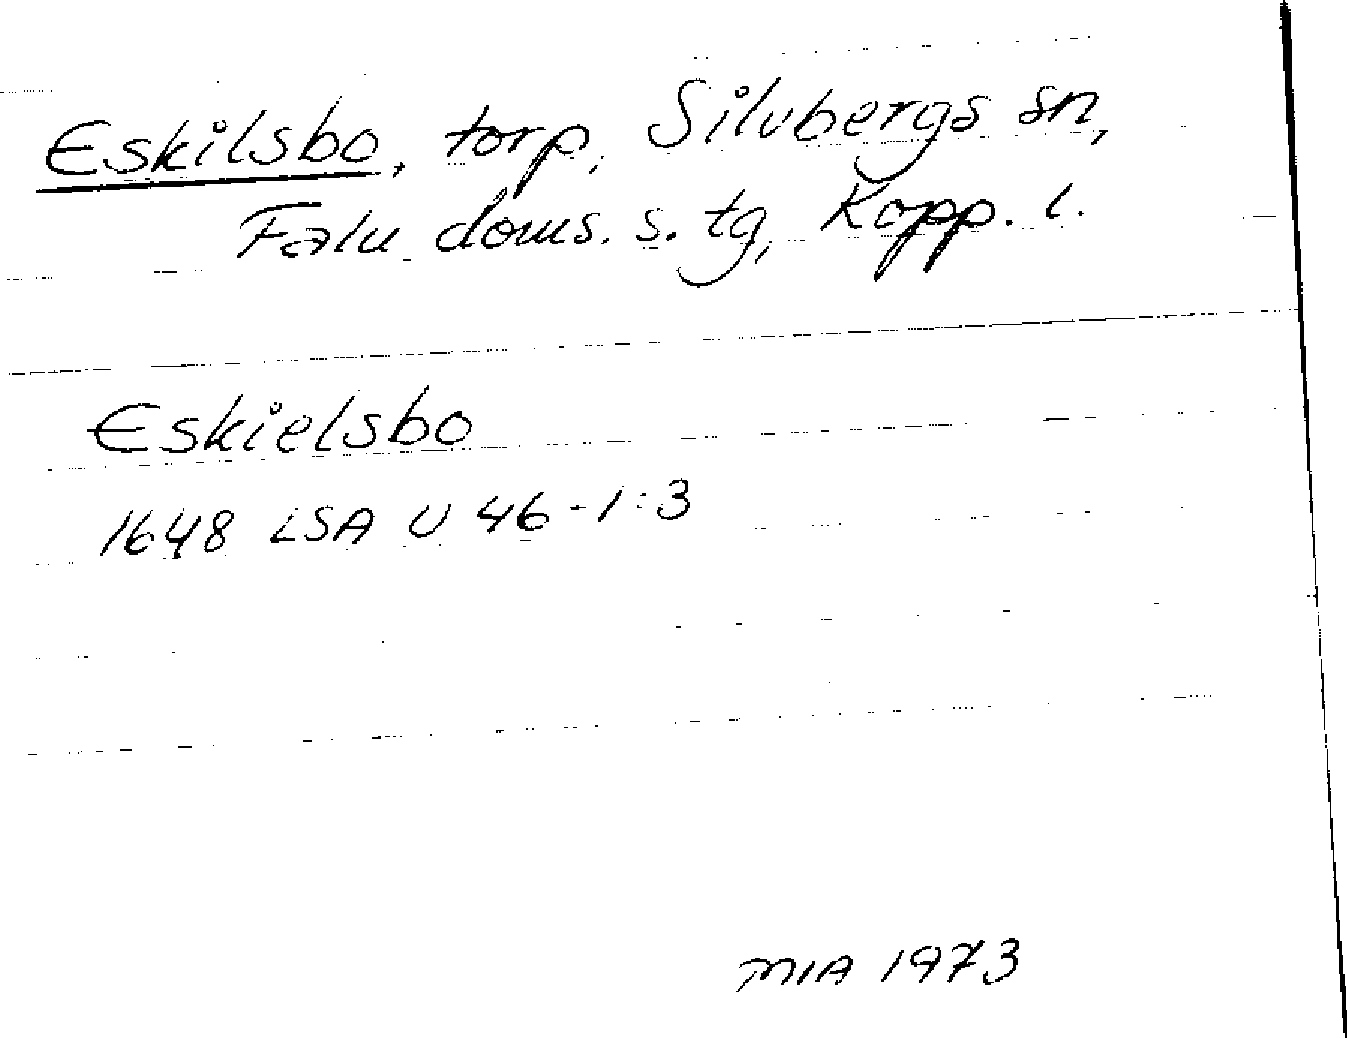 Eskilsbo, torp, Silvbergs sn,
Falu doms. s. tg, Kopp. l.
Eskielsbo
1648 LSA U 46-1:3
MIA 1973